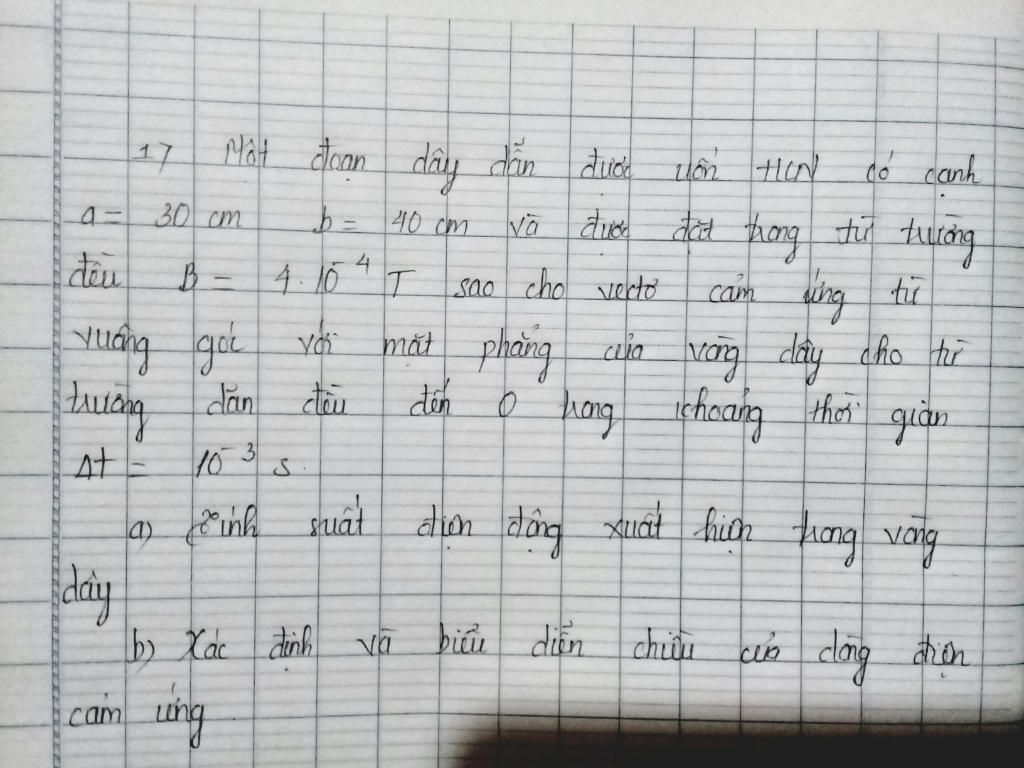 17 Một đoạn dây dẫn được uốn HCN có cạnh
a = 30 cm b = 40 cm và được đặt trong từ trường
đều B = 4.10⁻⁴ T sao cho vectơ cảm ứng từ
vuông góc với mặt phẳng của vòng dây cho từ
trường dần đều đến 0 trong khoảng thời gian
Δt = 10⁻³ s.
a) Tính suất điện động xuất hiện trong vòng
dây
b) Xác định và biểu diễn chiều của dòng điện
cảm ứng